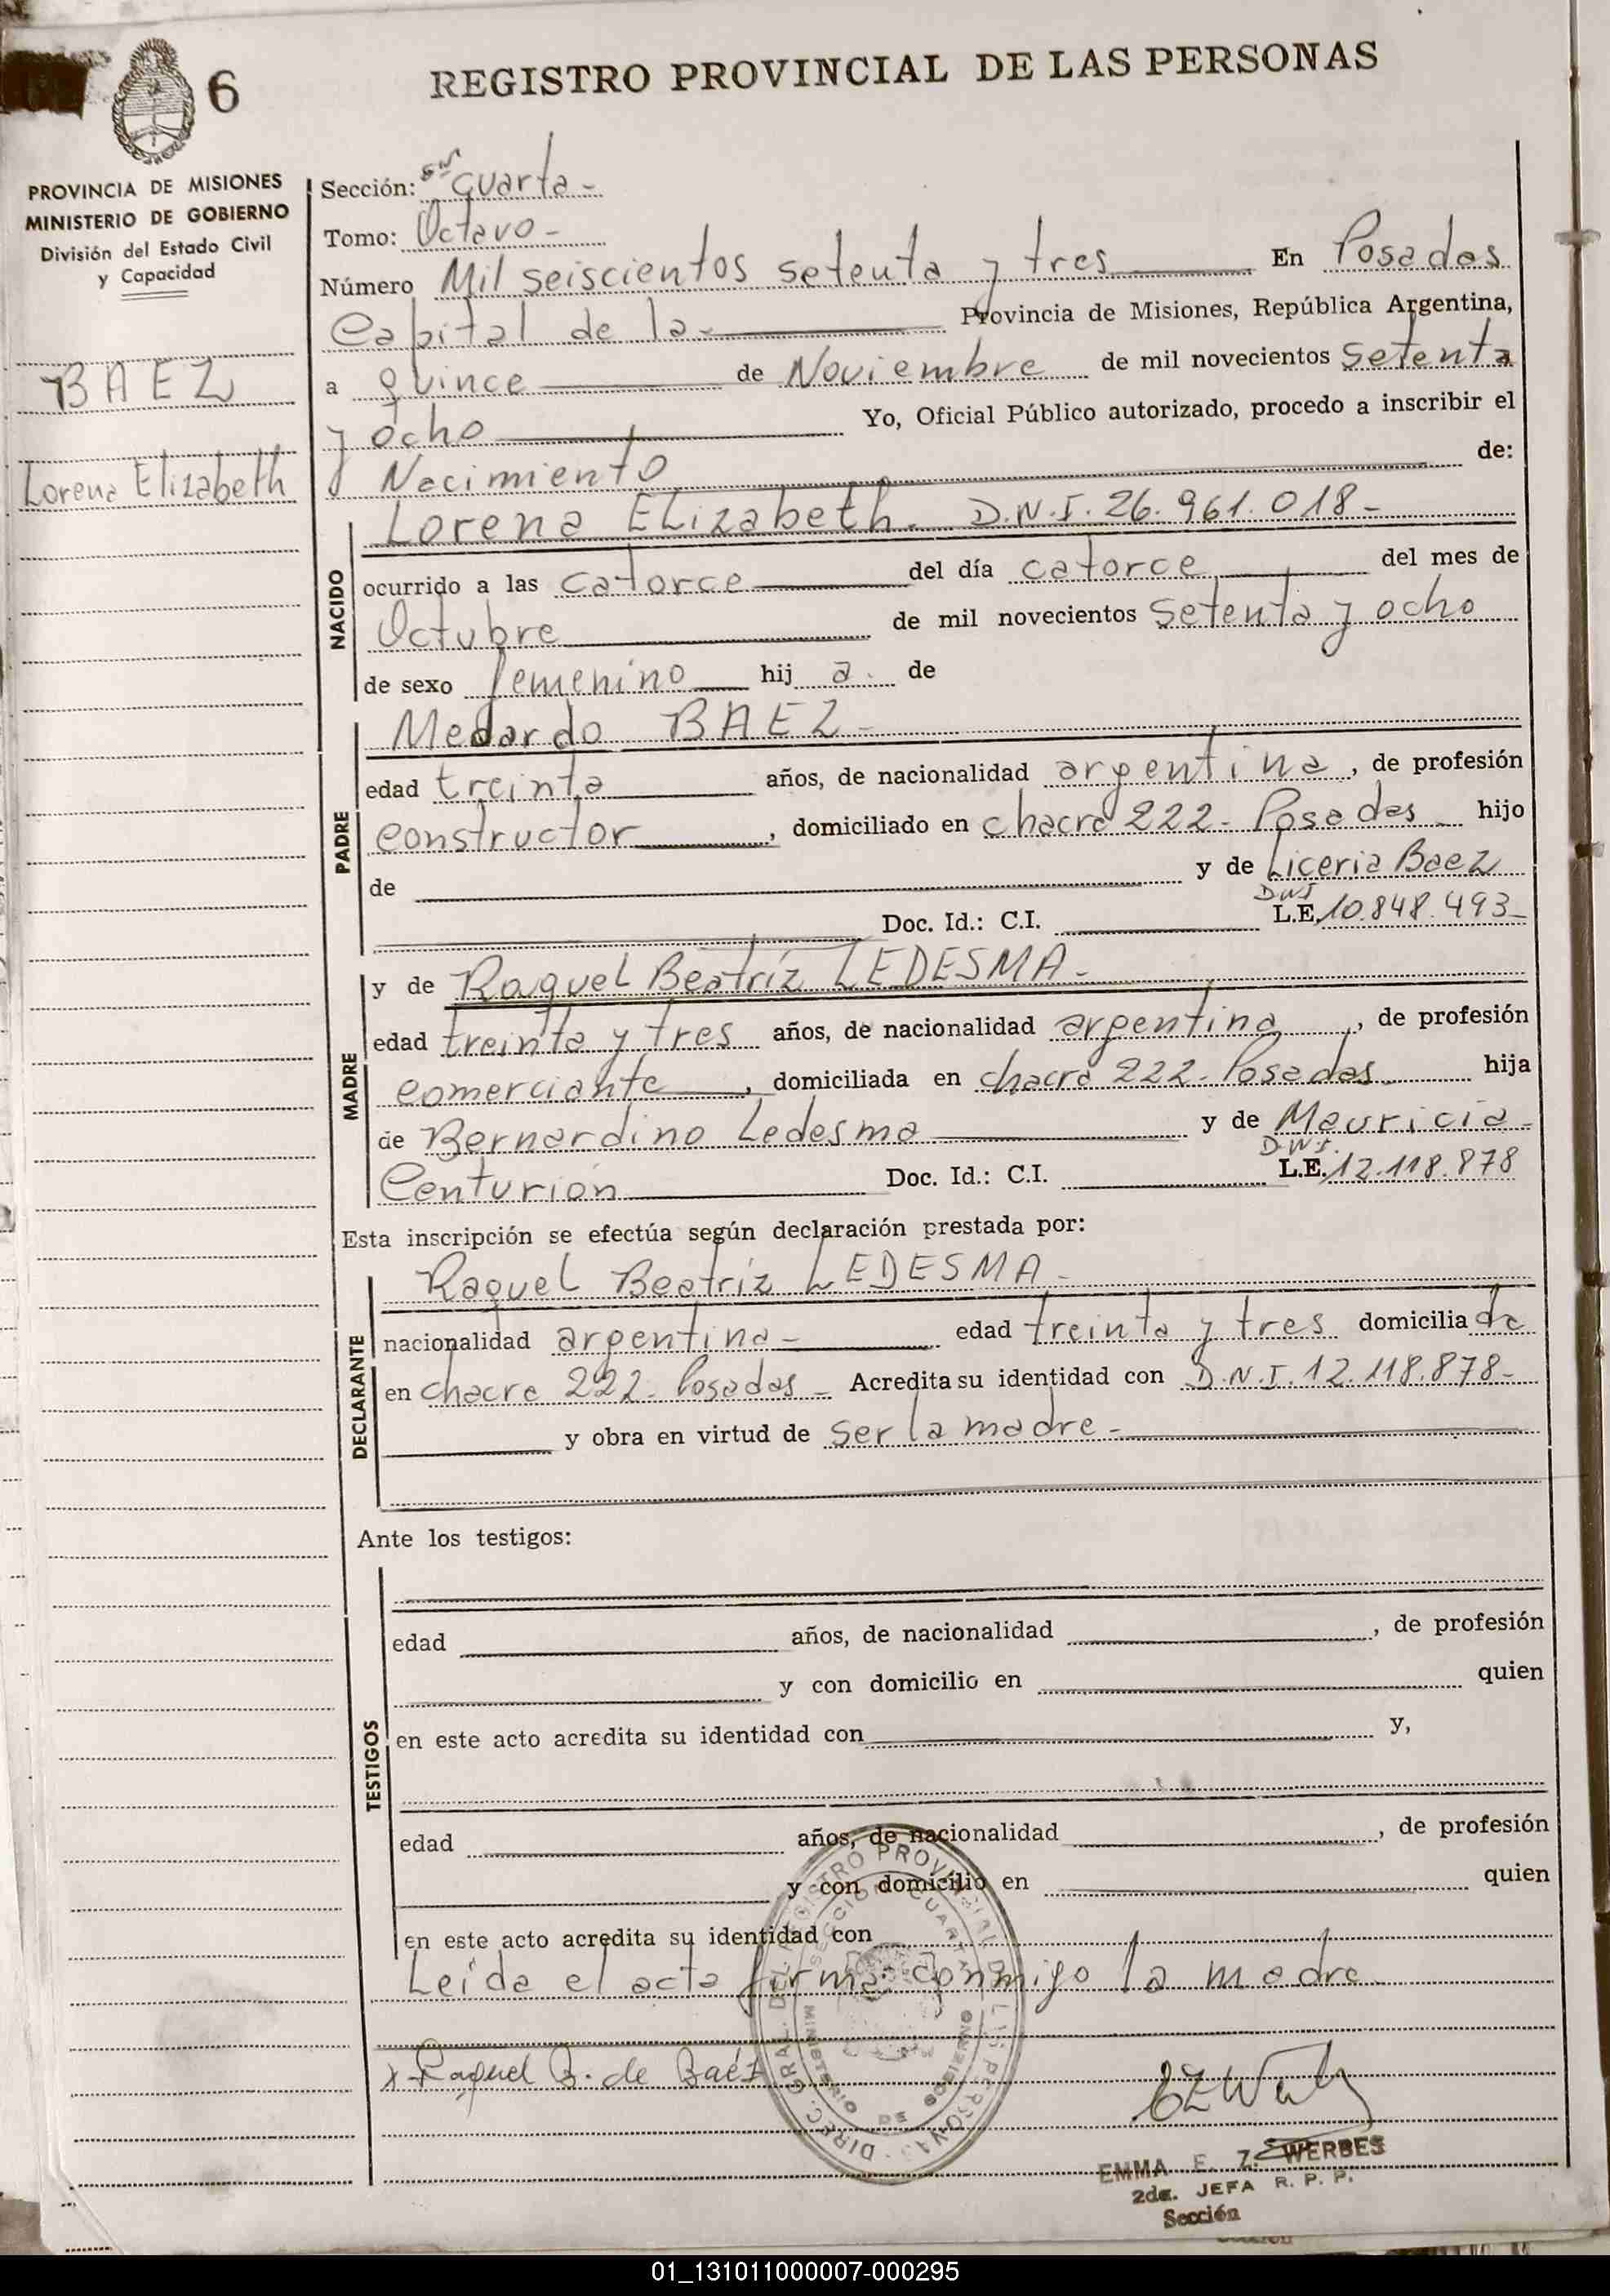 6
REGISTRO PROVINCIAL DE LAS PERSONAS
PROVINCIA DE MISIONES
MINISTERIO DE GOBIERNO
División del Estado Civil
y Capacidad
BAEZ
Lorena Elizabeth
Sección: Cuarta -
Tomo: Octavo -
Número Mil seiscientos setenta y tres En Posadas
Capital de la - Provincia de Misiones, República Argentina,
a quince de Noviembre de mil novecientos setenta
y ocho Yo, Oficial Público autorizado, procedo a inscribir el
Nacimiento de:
Lorena Elizabeth. D.N.I. 26.961.018 -
NACIDO
ocurrido a las catorce del día catorce del mes de
Octubre de mil novecientos setenta y ocho
de sexo femenino hij a. de
Medardo BAEZ -
PADRE
edad treinta años, de nacionalidad argentina, de profesión
constructor, domiciliado en chacra 222 - Posadas - hijo
de y de Liceria Baez
Doc. Id.: C.I. L.E. DNI 10.848.493 -
y de Raquel Beatríz LEDESMA -
MADRE
edad treinta y tres años, de nacionalidad argentina, de profesión
comerciante, domiciliada en chacra 222 - Posadas - hija
de Bernardino Ledesma y de Mauricia -
Centurión Doc. Id.: C.I. L.E. D.N.I. 12.118.878
Esta inscripción se efectúa según declaración prestada por:
Raquel Beatríz LEDESMA -
DECLARANTE
nacionalidad argentina - edad treinta y tres domiciliada
en chacra 222 - Posadas - Acredita su identidad con D.N.I. 12.118.878 -
y obra en virtud de ser la madre -
Ante los testigos:
TESTIGOS
edad años, de nacionalidad , de profesión
y con domicilio en quien
en este acto acredita su identidad con y,
edad años, de nacionalidad , de profesión
y con domicilio en quien
en este acto acredita su identidad con
Leída el acta firma conmigo la madre
x Raquel B. de Baéz
DIREC. GRAL. DEL REGISTRO PROVINCIAL DE LAS PERSONAS
SECCION CUARTA
MINISTERIO DE GOBIERNO
EMMA E. Z. WERBES
2da. JEFA R. P. P.
Sección
01_131011000007-000295